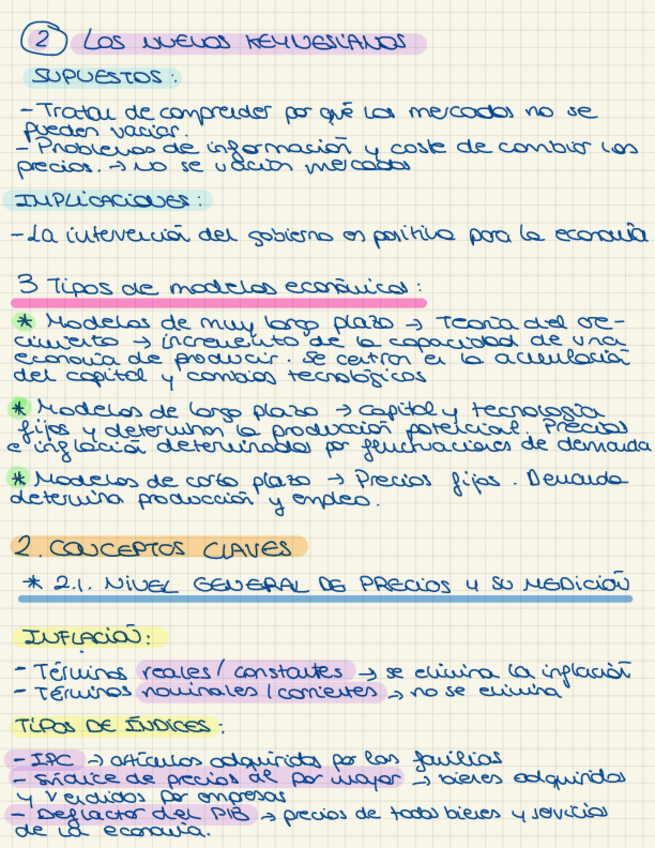 2 LOS NUEVOS KEYNESIANOS
SUPUESTOS:
- Tratar de comprender por qué los mercados no se
pueden vaciar.
- Problemas de información y coste de cambiar los
precios. → no se vacían mercados
IMPLICACIONES:
- La intervención del gobierno es positiva para la economía
3 Tipos de modelos económicos:
* Modelos de muy largo plazo → Teoría del cre-
cimiento → incremento de la capacidad de una
economía de producir. Se centran en la acumulación
del capital y cambios tecnológicos
* Modelos de largo plazo → capital y tecnología
fijos y determinan la producción potencial. Precios
e inflación determinados por fluctuaciones de demanda
* Modelos de corto plazo → Precios fijos. Demanda
determina producción y empleo.
2. CONCEPTOS CLAVES
* 2.1. NIVEL GENERAL DE PRECIOS Y SU MEDICIÓN
INFLACIÓN:
- Términos reales / constantes → se elimina la inflación
- Términos nominales / corrientes → no se elimina
TIPOS DE ÍNDICES:
- IPC → artículos adquiridos por las familias
- Índice de precios al por mayor → bienes adquiridos
y vendidos por empresas
- Deflactor del PIB → precios de todos bienes y servicios
de la economía.